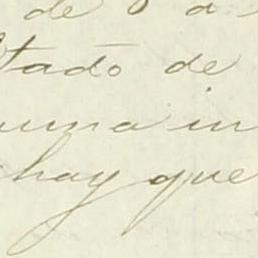 de
tado de
uma in
hay que